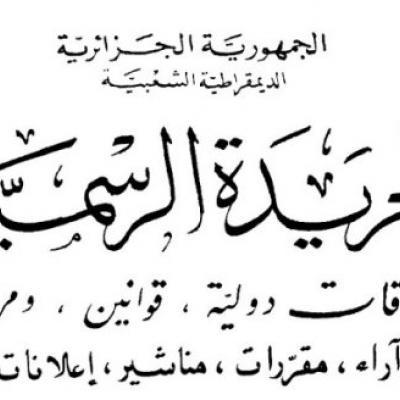 الجمهوريّة الجزائريّة
الديمقراطيّة الشعبيّة
ريدة الرسميّ
قات دوليّة ، قوانين ، ومر
آراء ، مقرّرات ، مناشير ، إعلانات